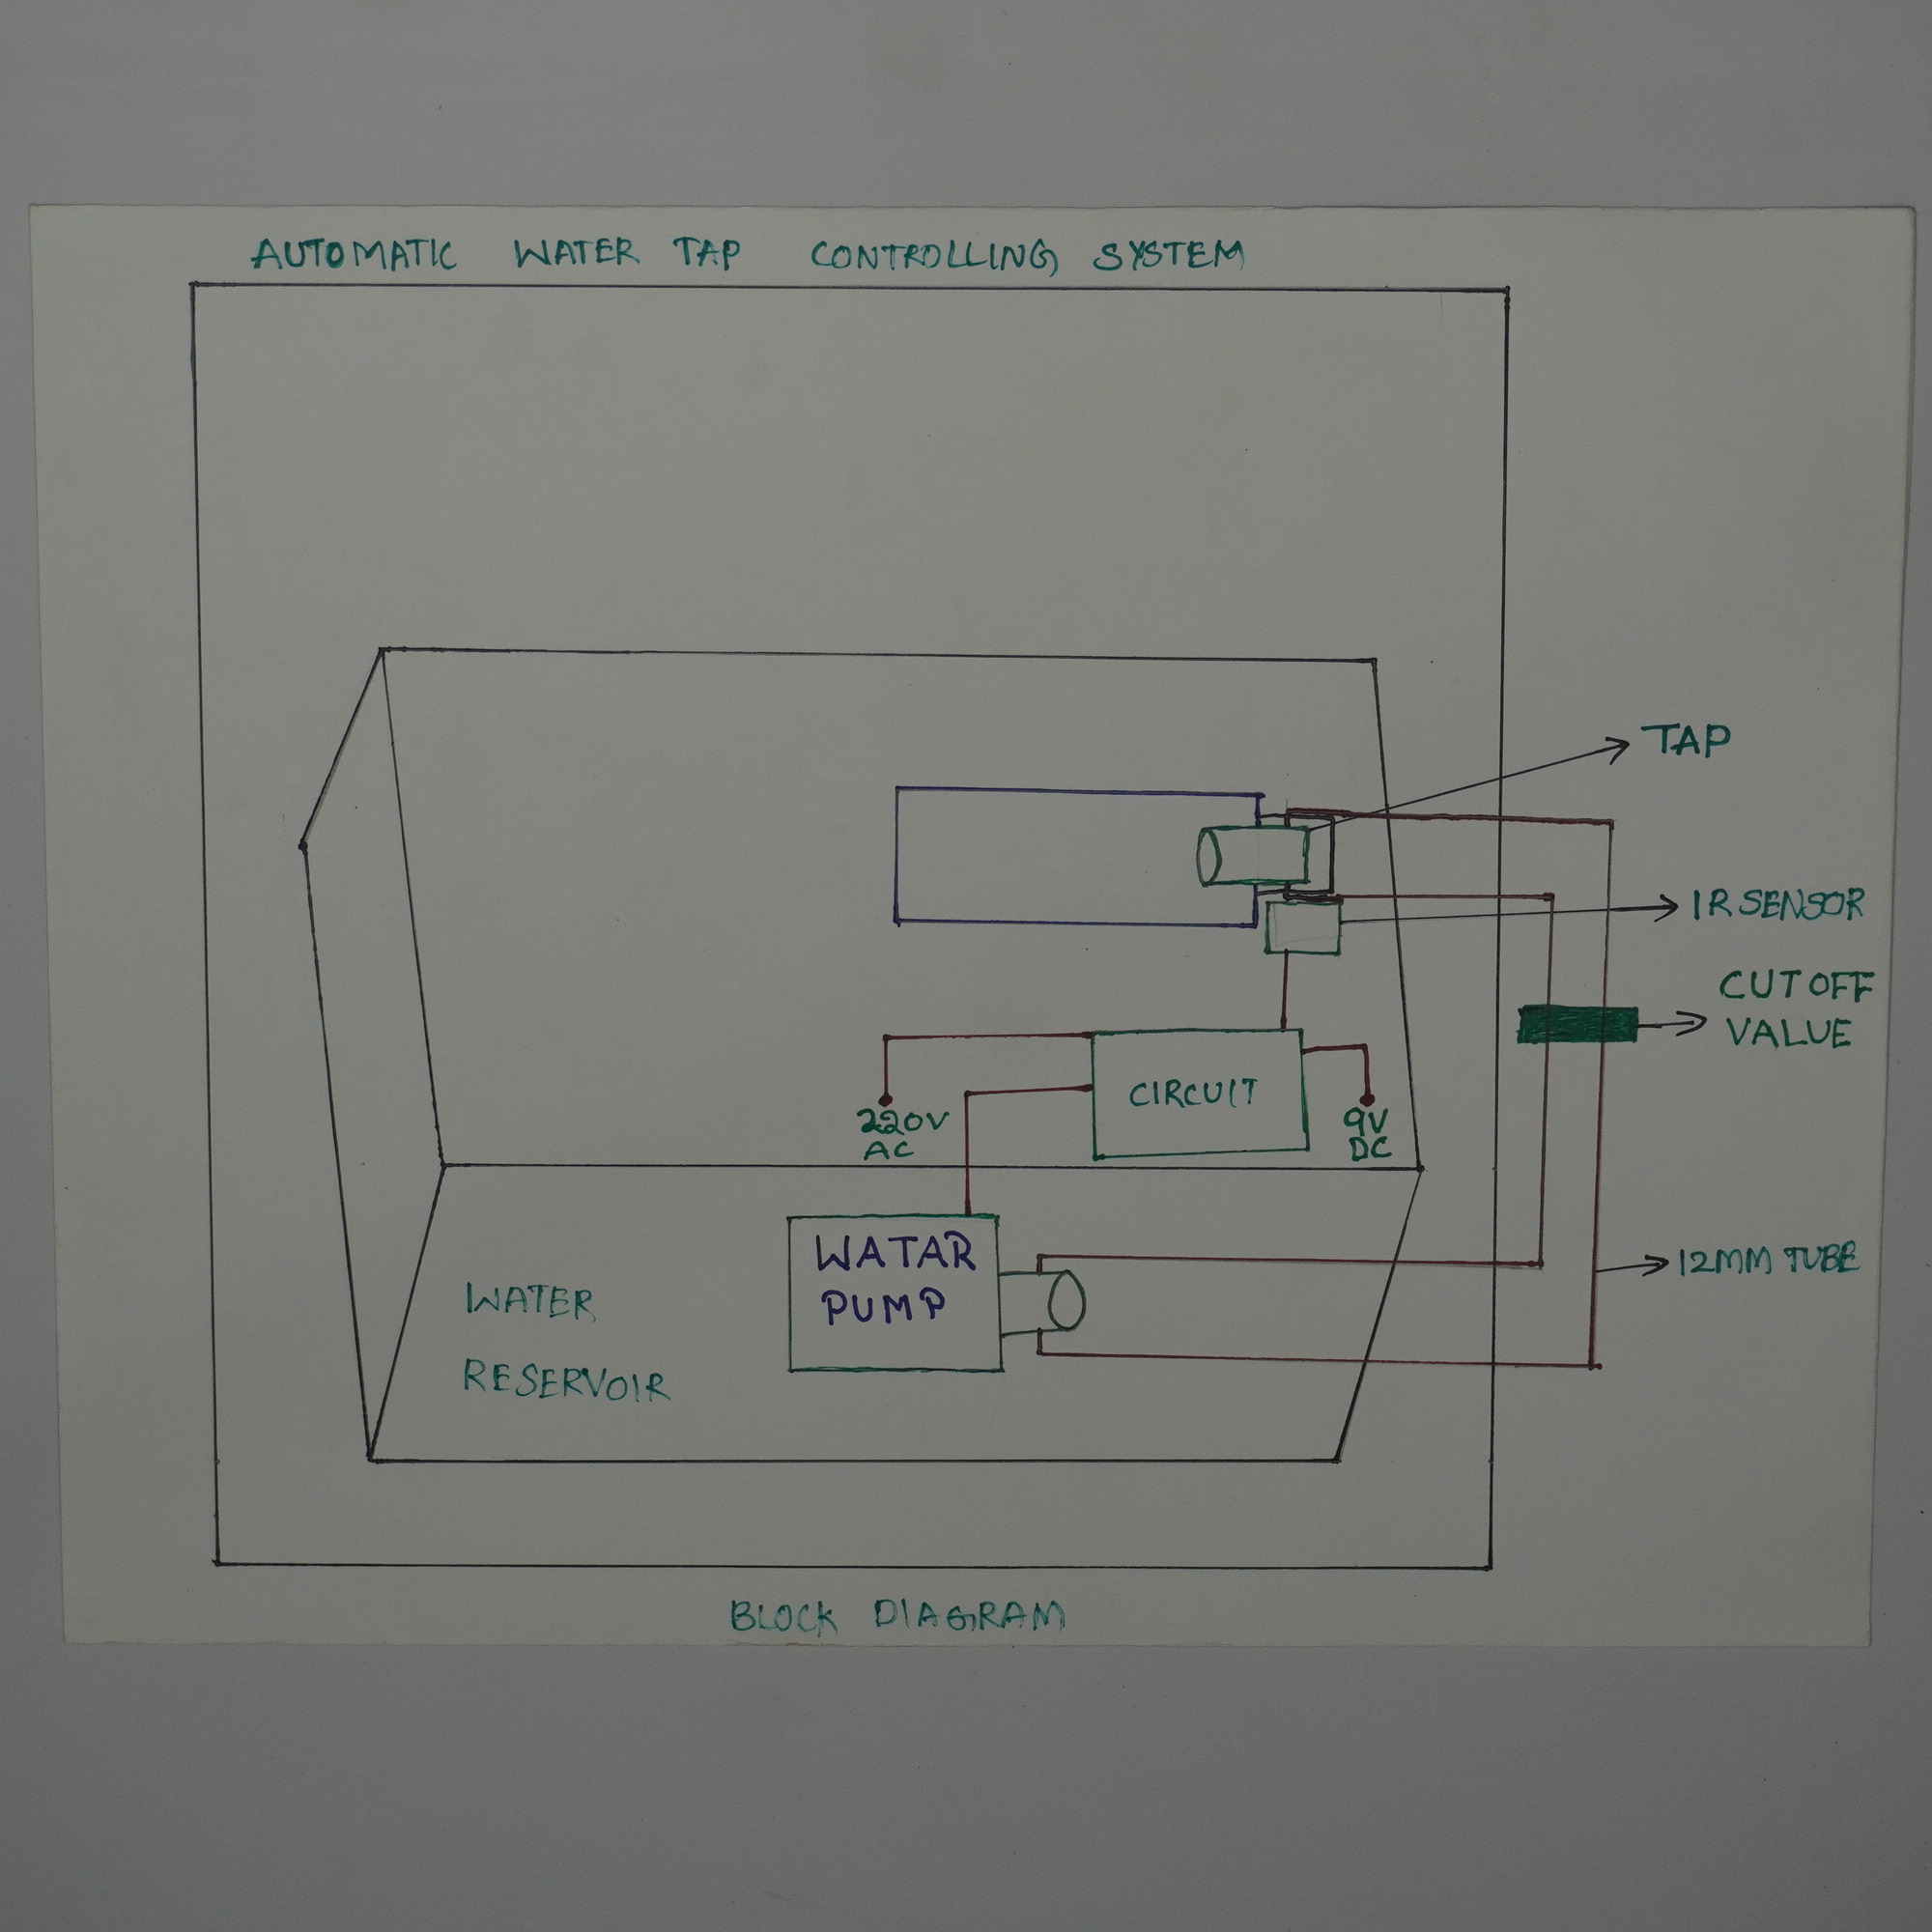 AUTOMATIC WATER TAP CONTROLLING SYSTEM
TAP
IR SENSOR
CUT OFF
VALUE
CIRCUIT
220V
AC
9V
DC
WATAR
PUMP
12MM TUBE
WATER
RESERVOIR
BLOCK DIAGRAM